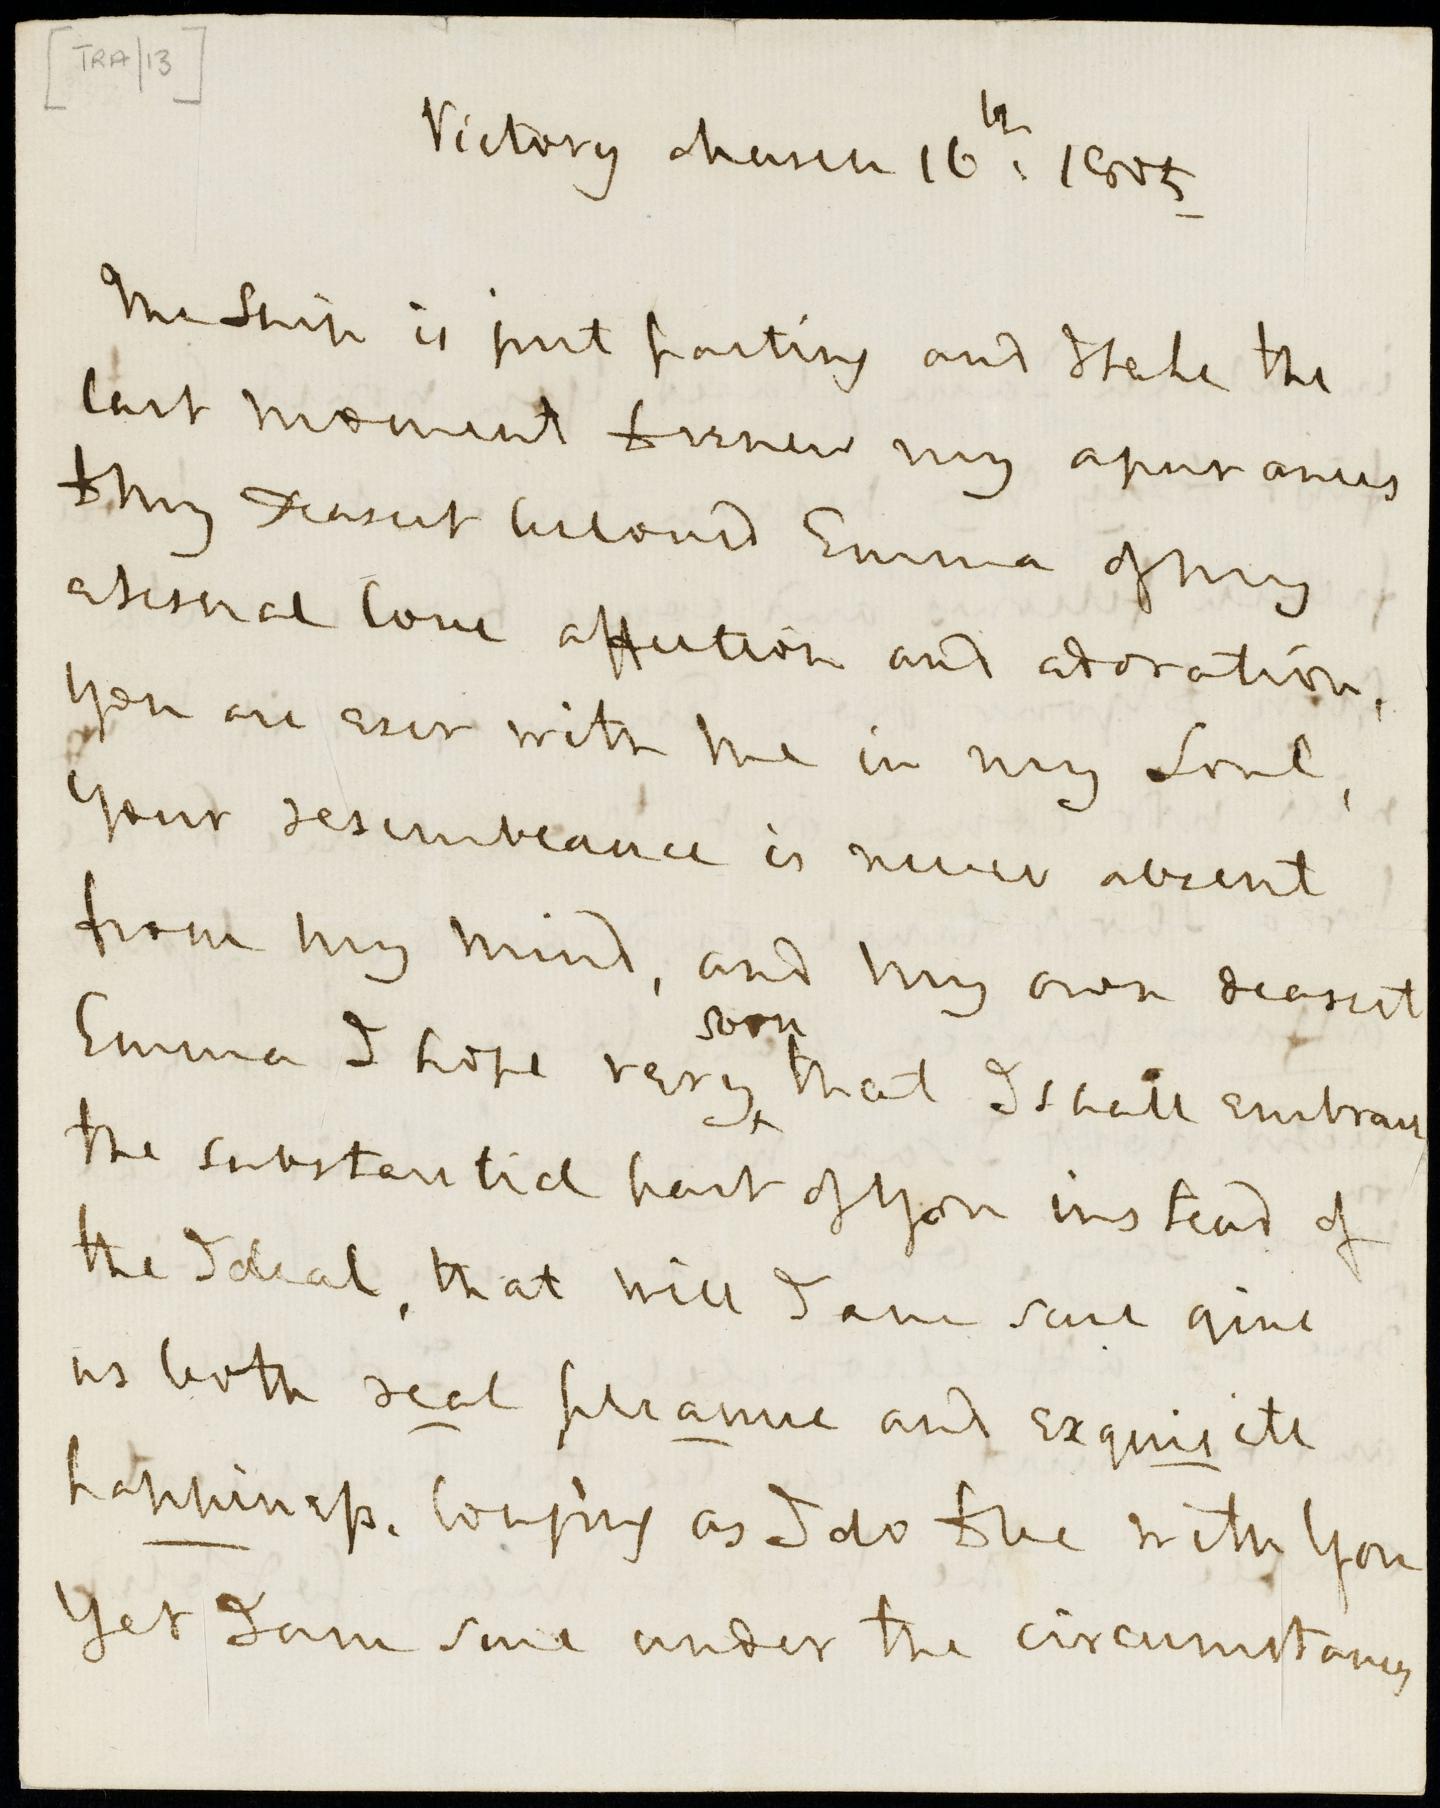 [TRA/13]
Victory March 16th: 1805
The Ship is just parting and I take the
last moment to renew my assurances
to my Dearest beloved Emma of my
eternal love affection and adoration,
You are ever with me in my Soul,
Your resemblance is never absent
from my mind, and my own dearest
Emma I hope very soon that I shall embrace
the substantial part of You instead of
the Ideal, that will I am sure give
us both real pleasure and exquisite
happiness. longing as I do to be with You
Yet I am sure under the circumstances